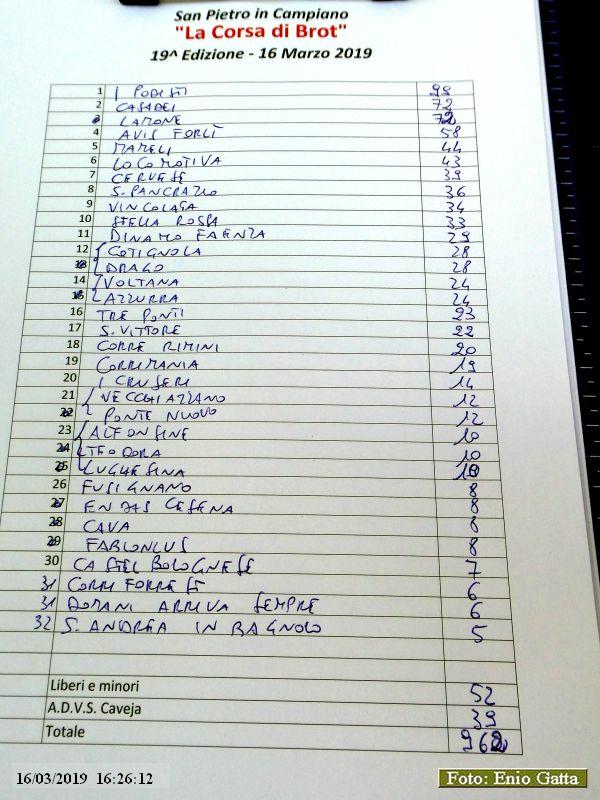 San Pietro in Campiano
"La Corsa di Brot"
19^ Edizione - 16 Marzo 2019
1 I PODISTI 99
2 CASADEI 72
3 LAMONE 72
4 AVIS FORLÌ 58
5 MAMELI 44
6 LOCOMOTIVA 43
7 CERVESE 39
8 S. PANCRAZIO 36
9 VINCOLATA 34
10 STELLA ROSSA 33
11 DINAMO FAENZA 29
12 COTIGNOLA 28
13 DRAGO 28
14 VOLTANA 24
15 AZZURRA 24
16 TRE PONTI 23
17 S. VITTORE 22
18 CORRE RIMINI 20
19 CORRIMANIA 19
20 I CRUSERI 14
21 VECCHIAZZANO 12
22 PONTE NUOVO 12
23 ALFONSINE 10
24 TEODORA 10
25 LUGHESINA 10
26 FUSIGNANO 8
27 ENDAS CESENA 8
28 CAVA 8
29 8
30 CASTEL BOLOGNESE 7
31 CORRI FORREST 6
31 DOMANI ARRIVA SEMPRE 6
32 S. ANDREA IN BAGNOLO 5
Liberi e minori 52
A.D.V.S. Caveja 39
Totale
16/03/2019 16:26:12
Foto: Enio Gatta